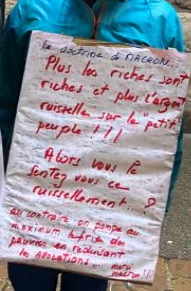 la doctrine de MACRON..
Plus les riches sont
riches et plus l'argent
ruisselle sur le "petit"
peuple !!!
Alors vous le
sentez vous ce
ruissellement ?
au contraire on pompe au
maximum le fric des
pauvres en réduisant
les allocations...
MACRON !!!